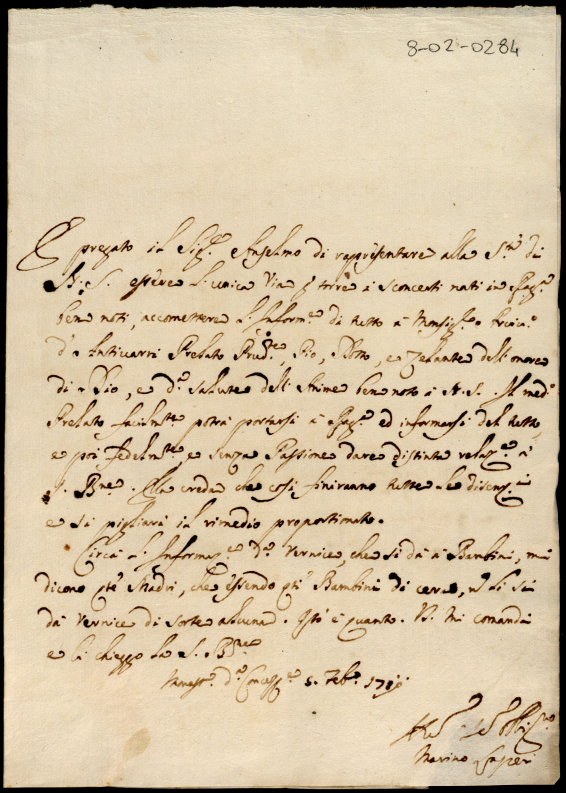 8-02-0284
È pregato il Sig.r Anselmo di rappresentare alla S.tà di
N.ro S. essere l'unica via p
ben noti, accomettere l'Inform.e di tutto à Monsig.r
d'Antivarri Prelato Pio, Dotto, e Zelante dell'onore
di Dio, e d. salute dell'Anime ben noto à N. S. Il med.o
Prelato facilm.te potrà portarsi à ed informarsi del tutto,
e poi fedelm.te e senza Passione dare distinta relaz.e à
S. B.ne. Ella creda che così finiranno tutte le
e si pigliarà il rimedio proportionato.
Circa l'Informaz.e d. Vernice, che si dà à Bambini, mi
dicono q.te Madri, che essendo q.ti Bambini di cera, n. li si
dà Vernice di sorte alcuna. è quanto. V. S. Mi comandi
e li chieggo la S. B.ne
5 Feb.o
Marino